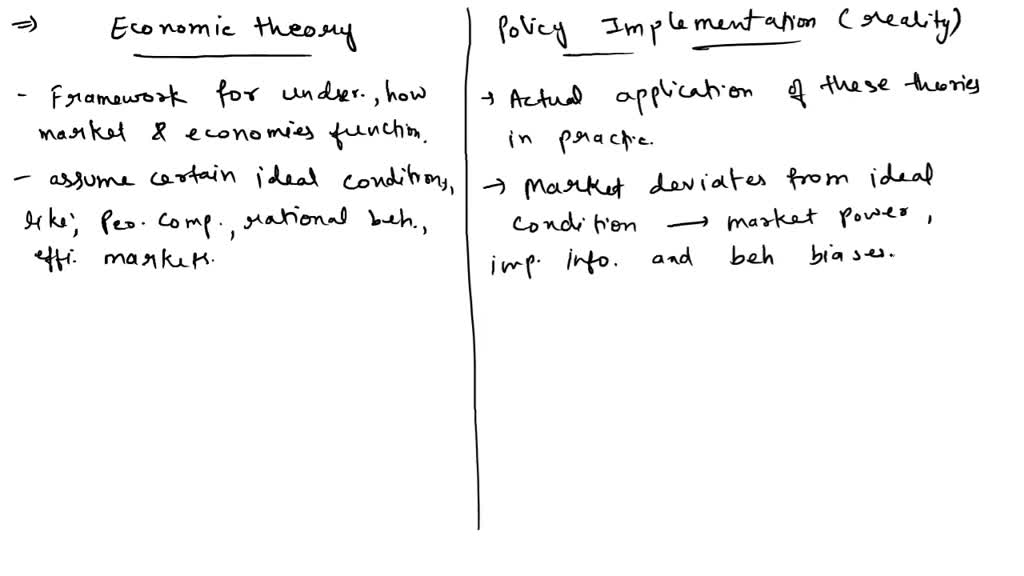 ⇒ Economic theory
- Framework for under., how
market & economies function.
- assume certain ideal conditions,
like; Per. comp., rational beh.,
effi. markets.
Policy Implementation (reality)
→ Actual application of these theories
in practice.
→ Market deviates from ideal
condition → market power,
imp. info. and beh biases.